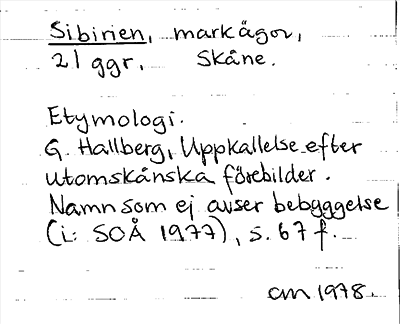 Sibirien, markågor,
21 ggr, Skåne.
Etymologi.
G. Hallberg, Uppkallelse efter
utomskånska förebilder.
Namn som ej avser bebyggelse
(i: SOÅ 1977), s. 67 f.
CM 1978.